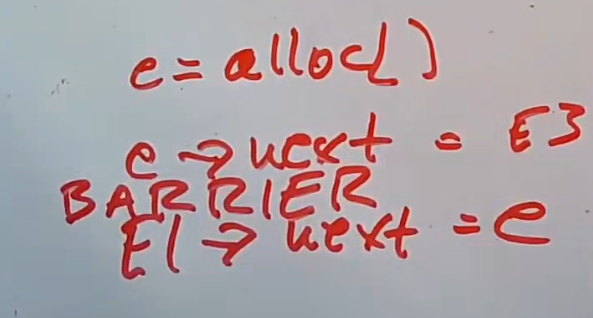 e = alloc()
e → next = E3
BARRIER
E1 → next = e